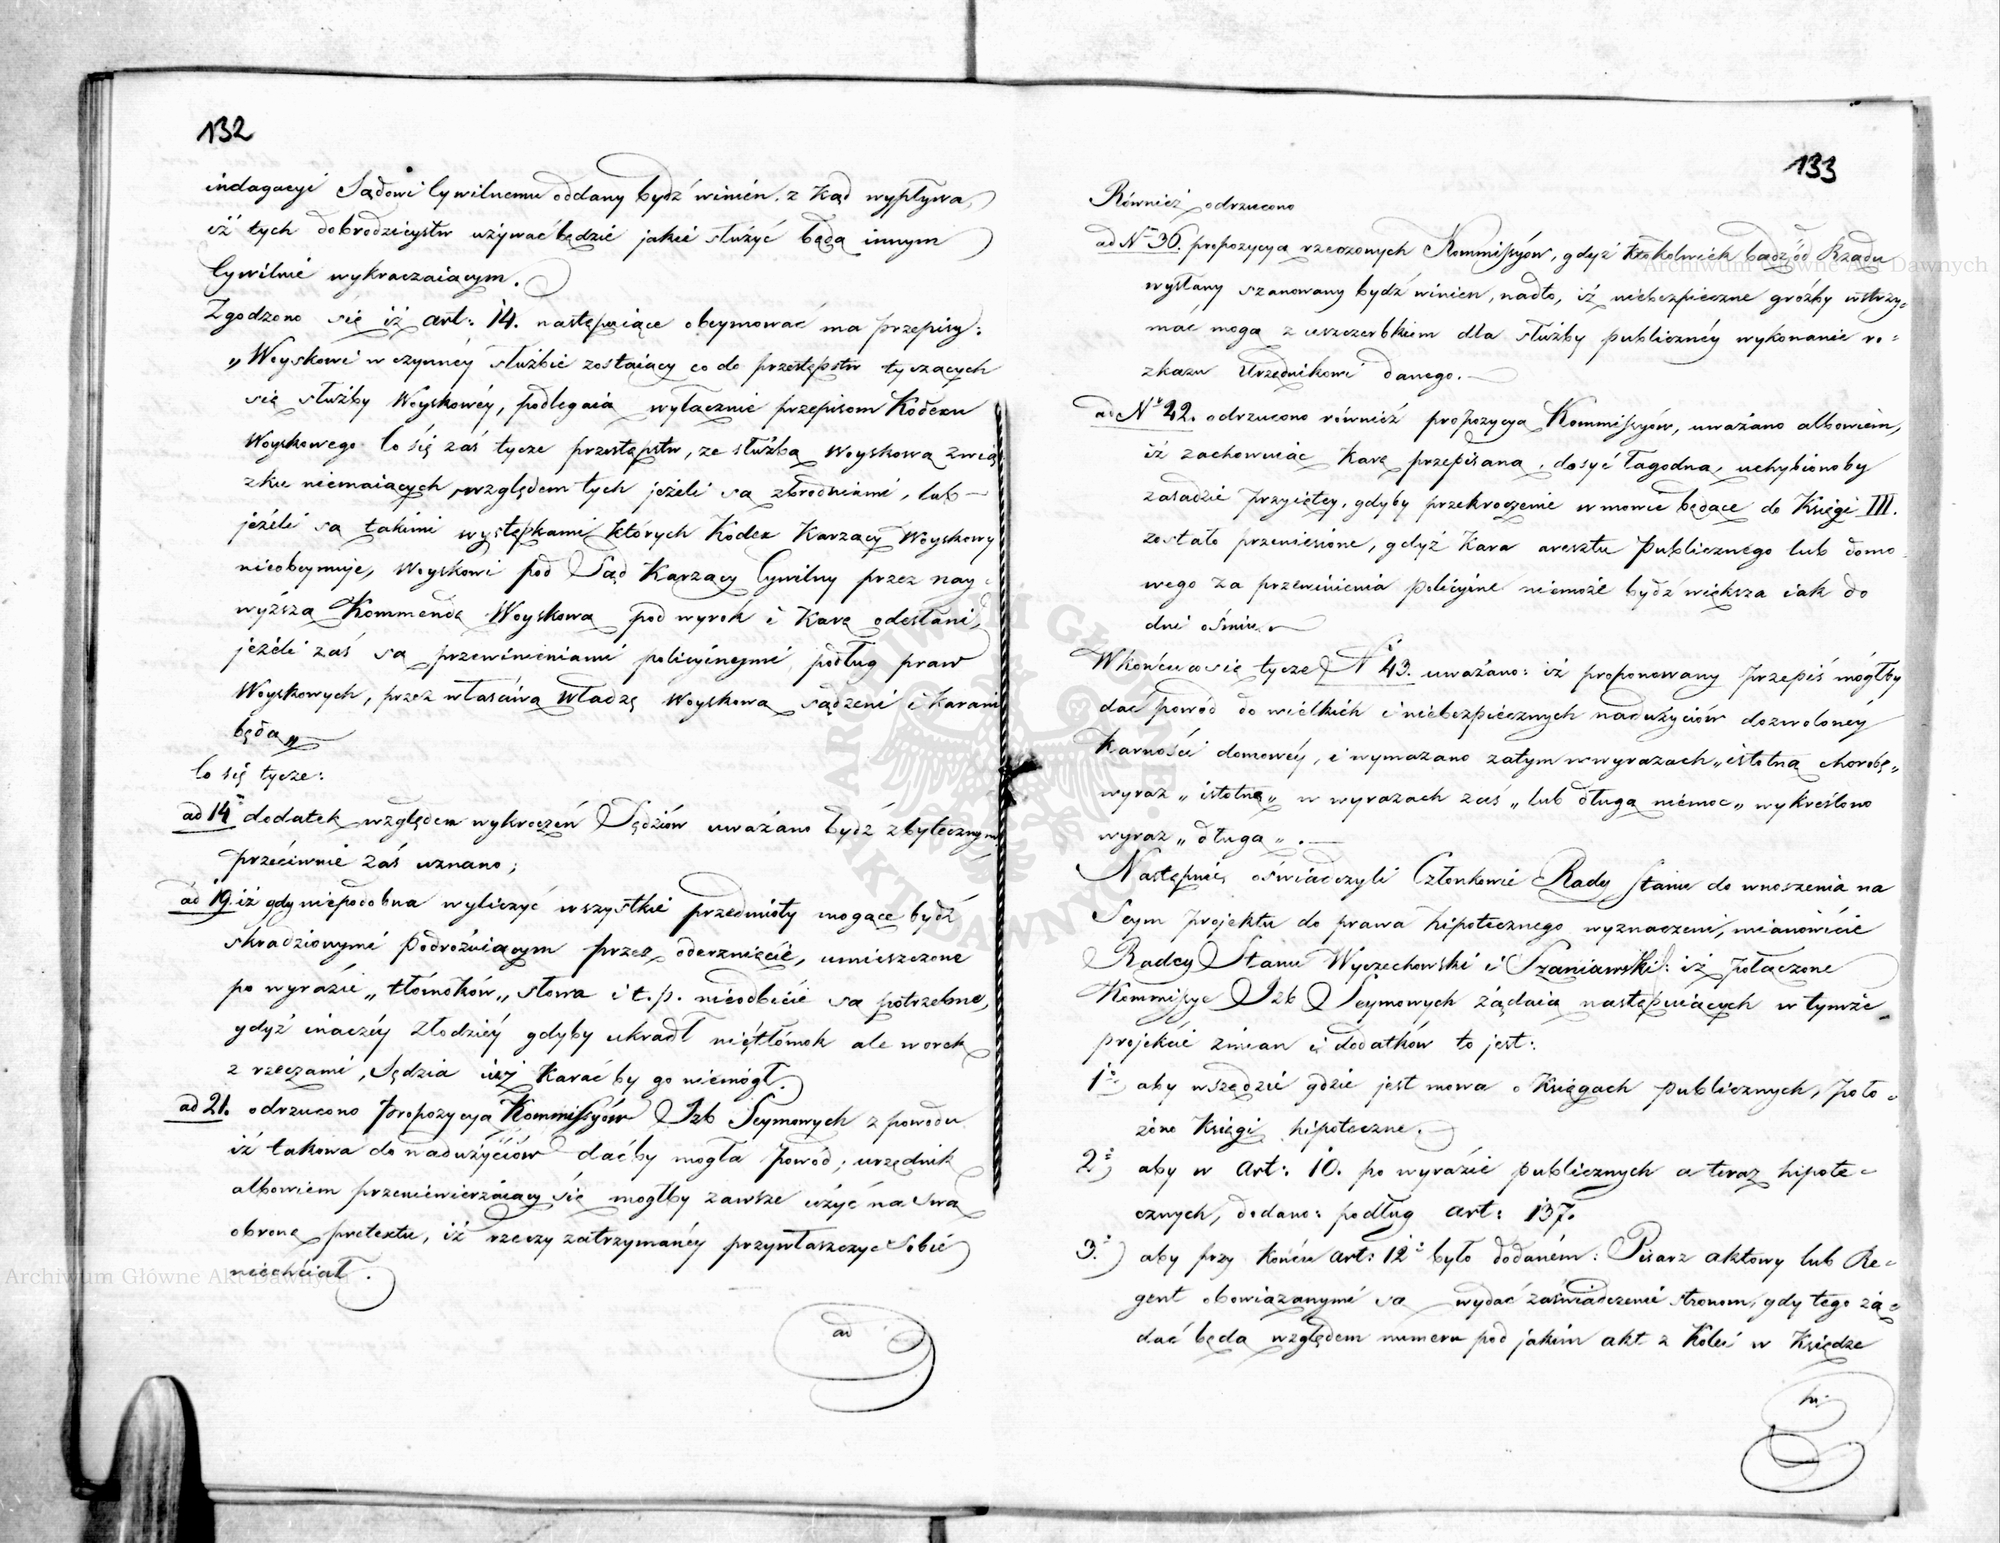 132
indagacyi Sądowi Cywilnemu oddany bydź winien. z kąd wypływa,
iż tych dobrodzieystw używać będzie jakie służyć będą innym
Cywilnie wykraczaiącym.
Zgodzono się iż art: 14. następuiące obeymować ma przepisy:
„Woyskowi w czynnéy służbie zostaiący co do przestępstw tyczących
się służby Woyskowéy, podlegaią wyłącznie przepisom Kodexu
Woyskowego. Co się zaś tycze przestępstw, ze służbą Woyskową zwią
zku niemaiących, względem tych jeżeli są zbrodniami, lub
jeżeli są takimi występkami których Kodex Karzący Woyskowy
nieobeymuje, Woyskowi pod Sąd Karzący Cywilny przez nay-
wyższą Kommendę Woyskową pod wyrok i karę odesłani,
jeżeli zaś są przewinieniami policyinemi, podług praw
Woyskowych, przez właściwą Władzę Woyskową sądzeni i karani
będą„
Co się tycze:
ad 14. dodatek względem wykroczeń Sędziów uważano bydź zbytecznym
przeciwnie zaś uznano;
ad 19. iż gdy niepodobna wyliczyć wszystkie przedmioty mogące bydź
skradzionymi podróżuiącym przez oderznięcie, umieszczone
po wyrazie „tłómoków„ słowa i t. p. nieodbicie są potrzebne,
gdyż inaczéy złodziéy gdyby ukradł nie tłómok ale worek
z rzeczami, Sędzia iuż karać by go niemógł.
ad 21. odrzucono propozycyą Kommissyów Izb Seymowych z powodu
iż takowa do nadużyciów dać by mogła powód; urzędnik
albowiem przeniewierzaiący się mogłby zawsze użyć na swą
obronę pretextu, iż rzeczy zatrzymanéy przywłaszczyć sobie
niechciał.
ad
133
Również odrzucono
ad Nr 36. propozycyą rzeczonych Kommissyów, gdyż ktokolwiek bądź od Rządu
wysłany szanowany bydź winien, nadto, iż niebezpieczne groźby wstrzy-
mać mogą z uszczerbkiem dla służby publicznéy wykonanie ro-
zkazu Urzędnikowi danego.
ad Nr 42. odrzucono również propozycyą Kommissyów, uważano albowiem,
iż zachowuiąc karę przepisaną, dosyć łagodną, uchybionoby
zasadzie przyiętey, gdyby przekroczenie w mowie będące do Księgi III.
zostało przeniesione, gdyż kara aresztu publicznego lub domo
wego za przewinienia policyine niemoże bydź większą iak do
dni ośmiu.
W końcu co się tycze Nr 43. uważano: iż proponowany przepis mógłby
dać powód do wielkich i niebezpiecznych nadużyciów dozwolonéy
karności domowéy, i wymazano zatym w wyrazach „istotną chorobę„
wyraz „istotną„ w wyrazach zaś „lub długą niemoc„ wykreślono
wyraz „długą„.
Następnie oświadczyli Członkowie Rady Stanu do wnoszenia na
Seym projektu do prawa hipotecznego wyznaczeni, mianowicie
Radcy Stanu Wyczechowski i Szaniawski: iż połączone
Kommissye Izb Seymowych żądaią następuiących w tymże
projekcie zmian i dodatków to jest:
1o) aby wszędzie gdzie jest mowa o księgach publicznych, poło-
żono Księgi hipoteczne.
2o) aby w art: 10. po wyrazie publicznych a teraz hipote-
cznych, dodano: podług art: 137.
3o) aby przy końcu art: 12o było dodaném: Pisarz aktowy lub Re-
gent obowiązanymi są wydać zaświadczenie stronom, gdy tego żą-
dać będą względem numeru pod jakim akt z kolei w Księdze
hi
Archiwum Główne Akt Dawnych
Archiwum Główne Akt Dawnych
ARCHIWUM GŁÓWNE AKT DAWNYCH